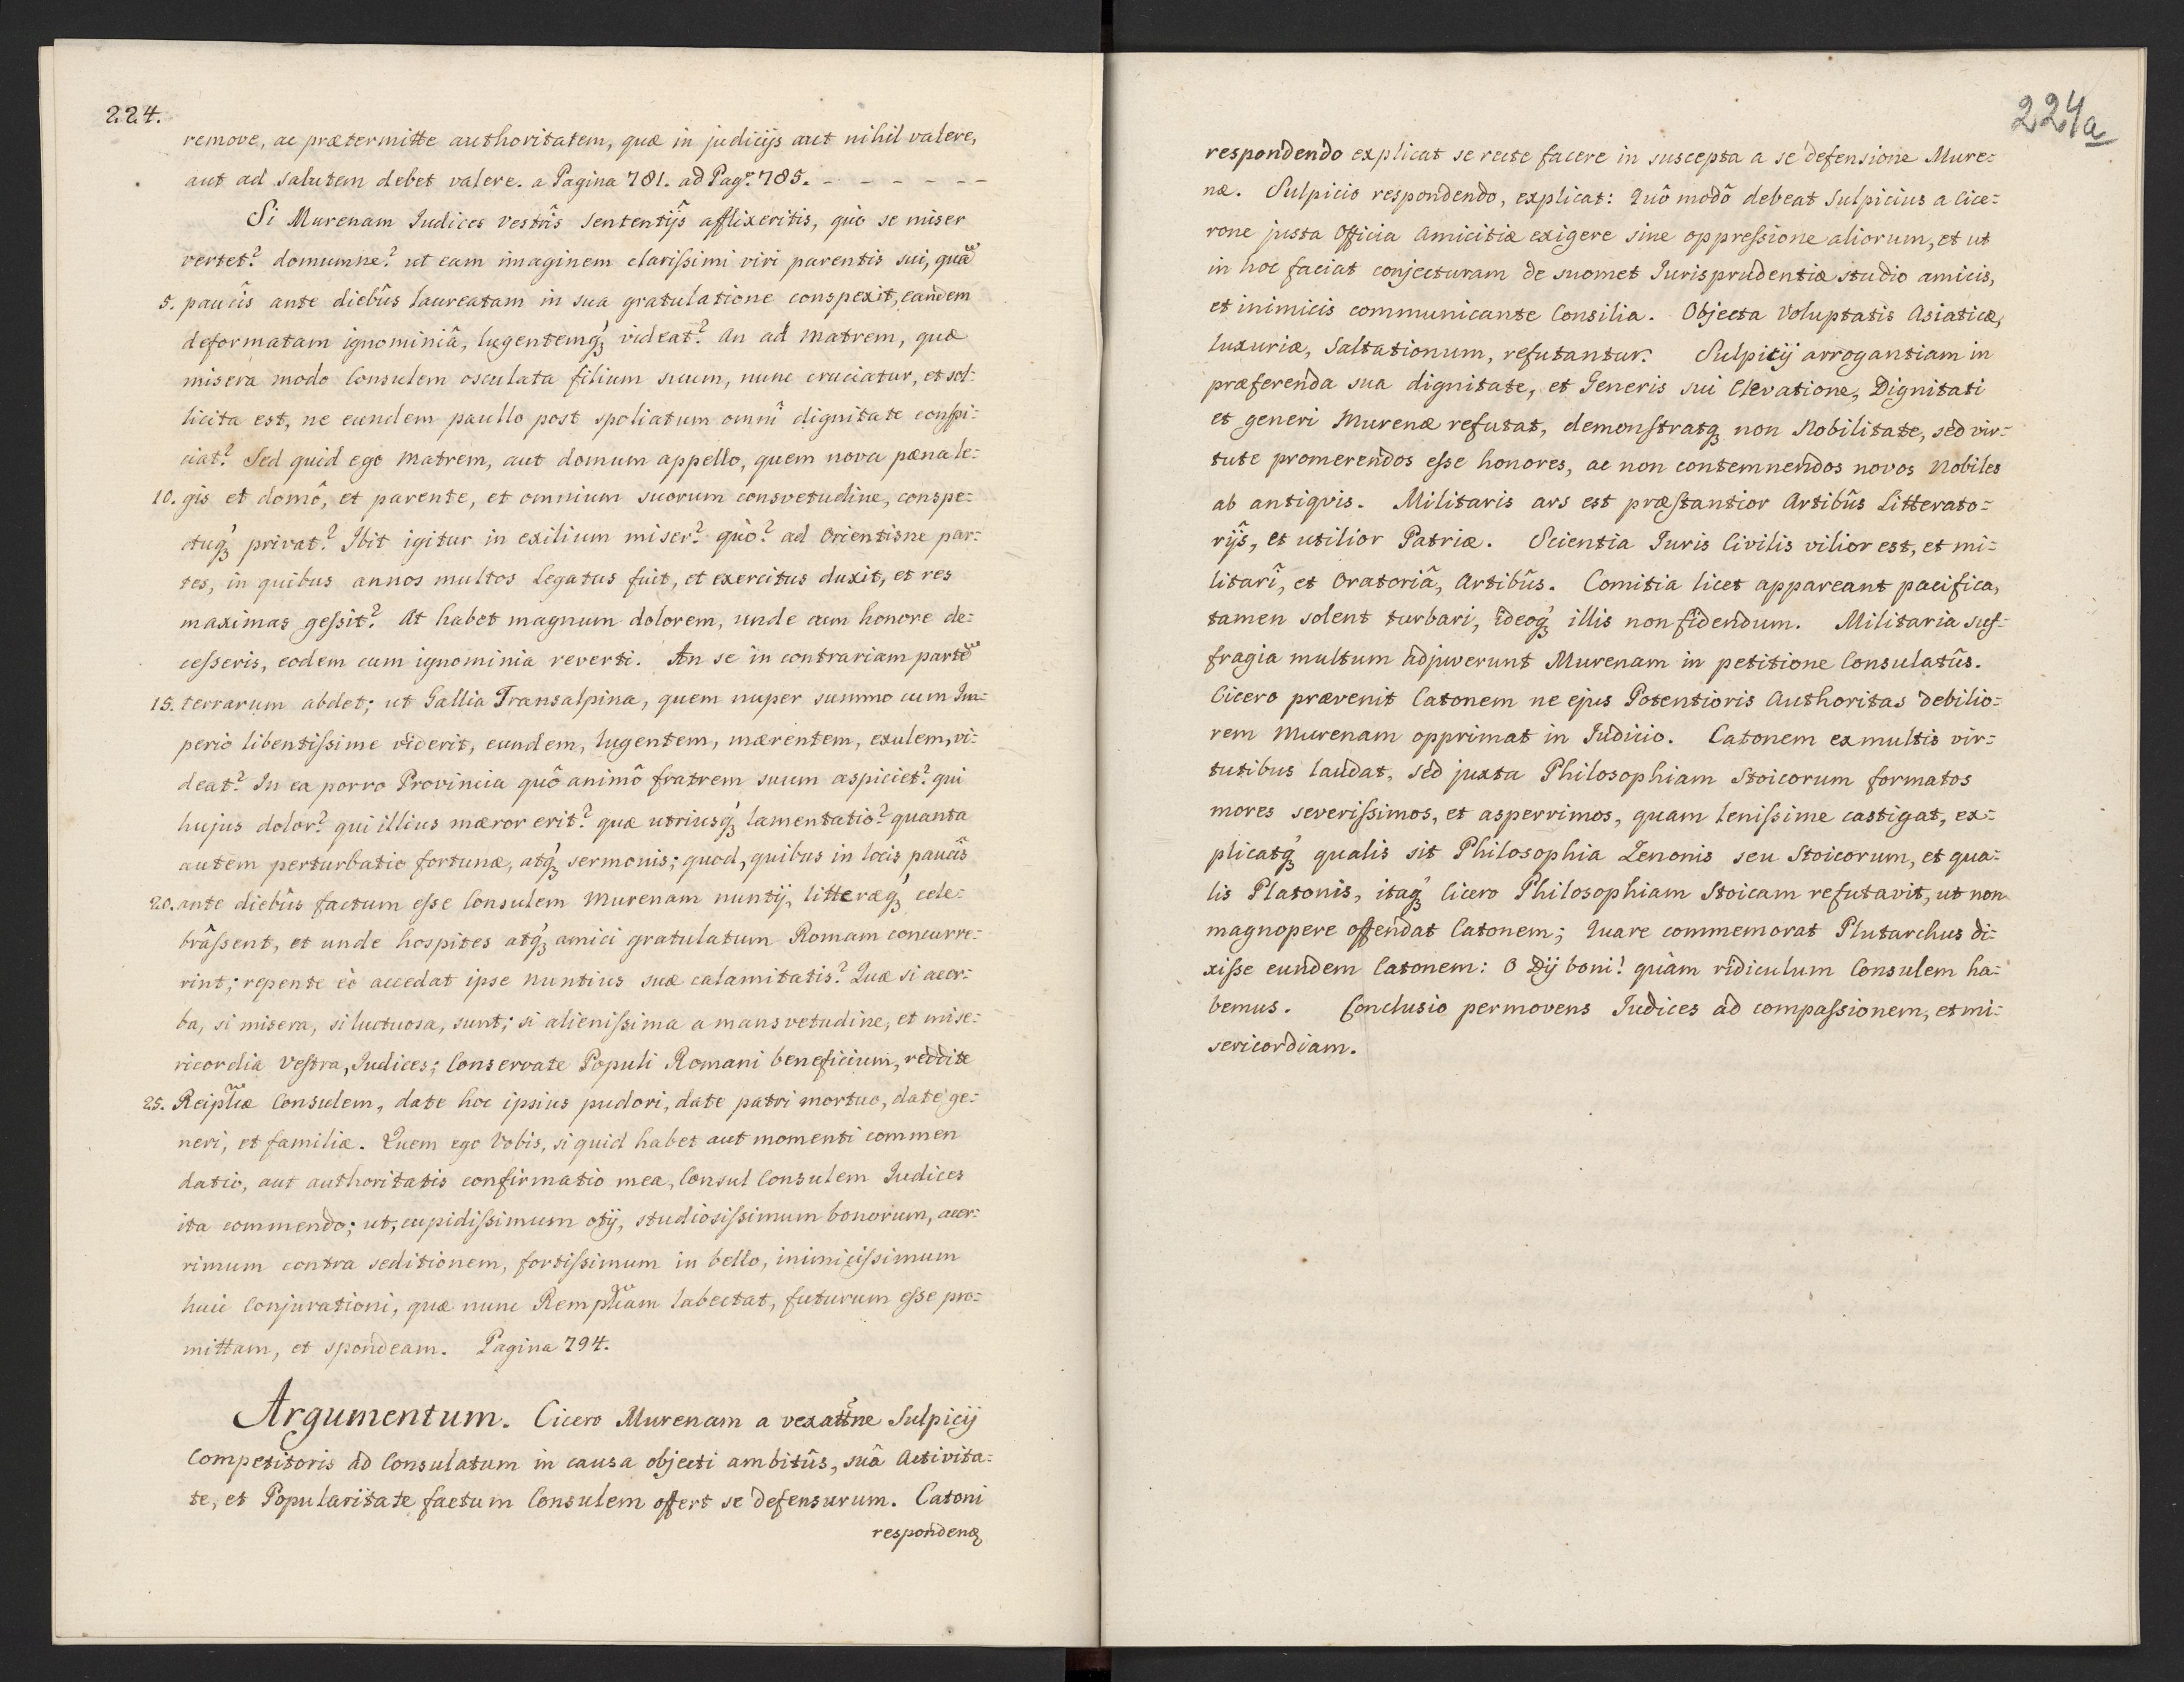 224.
remove, ac prætermitte authoritatem, quæ in judicijs aut nihil valere,
aut ad salutem debet valere. a Pagina 781. ad Pag. 785. - - - - - -
Si Murenam Iudices vestrîs sententijs afflixeritis, quò se miser
vertet? domumne? ut eam imaginem clarissimi viri parentis sui, quã
5. paucîs ante diebûs laureatam in sua gratulatione conspexit, eandem
deformatam ignominiâ, lugentemq́ꝫ videat? An ad matrem, quæ
misera modo Consulem osculata filium suum, nunc cruciatur, et sol:
licita est, ne eundem paullo post spoliatum omnî dignitate conspi:
ciat? Sed quid ego matrem, aut domum appello, quem nova pæna le:
10. gis et domô, et parente, et omnium suorum consvetudine, conspe:
ctuq́ꝫ privat? Ibit igitur in exilium miser? quò? ad Orientisne par:
tes, in quibus annos multos Legatus fuit, et exercitus duxit, et res
maximas gessit? At habet magnum dolorem, unde cum honore de:
cesseris, eodem cum ignominia reverti. An se in contrariam partẽ
15. terrarum abdet; ut Gallia Transalpina, quem nuper summo cum Im:
perio libentissime viderit, eundem, lugentem, mærentem, exulem, vi:
deat? In ea porro Provincia quô animô fratrem suum aspiciet? qui
hujus dolor? qui illius mæror erit? quæ utriusq́ꝫ lamentatio? quanta
autem perturbatio fortunæ, atq́ꝫ sermonis; quod, quibus in locis paucîs
20. ante diebûs factum esse Consulem Murenam nuntij, litteræq́ꝫ cele:
brâssent, et unde hospites atq́ꝫ amici gratulatum Romam concurre:
rint; repente eò accedat ipse nuntius suæ calamitatis? Quæ si acer:
ba, si misera, si luctuosa, sunt; si alienissima a mansvetudine, et mise:
ricordia vestra, Iudices; Conservate Populi Romani beneficium, reddite
25. Reiplicæ Consulem, date hoc ipsius pudori, date patri mortuo, date ge:
neri, et familiæ. Quem ego Vobis, si quid habet aut momenti commen
datio, aut authoritatis confirmatio mea, Consul Consulem Iudices
ita commendo; ut, cupidissimum otij, studiosissimum bonorum, acer:
rimum contra seditionem, fortissimum in bello, inimicissimum
huic Conjurationi, quæ nunc Remplicam labectat, futurum esse pro:
mittam, et spondeam. Pagina 794.
Argumentum. Cicero Murenam a vexattne Sulpicij
Competitoris ad Consulatum in causa objecti ambitûs, suâ Activita:
te, et Popularitate factum Consulem offert se defensurum. Catoni
respondendo
224a
respondendo explicat se recte facere in suscepta a se defensione Mure:
næ. Sulpicio respondendo, explicat: Quô modô debeat Sulpicius a Cice:
rone justa Officia Amicitiæ exigere sine oppressione aliorum, et ut
in hoc faciat conjecturam de suomet Iurisprudentiæ studio amicis,
et inimicis communicante Consilia. Objecta Voluptatis Asiaticæ,
luxuriæ, Saltationum, refutantur. Sulpicij arrogantiam in
præferenda sua dignitate, et Generis sui Elevatione, Dignitati
et generi Murenæ refutat, demonstratqꝫ non Nobilitate, sed vir:
tute promerendos esse honores, ac non contemnendos novos Nobiles
ab antiqvis. Militaris ars est præstantior Artibûs Litterato:
rijs, et utilior Patriæ. Scientia Iuris Civilis vilior est, et mi:
litarî, et Oratoriâ, Artibûs. Comitia licet appareant pacifica,
tamen solent turbari, ideoq́ꝫ illis non fidendum. Militaria suf:
fragia multum adjuverunt Murenam in petitione Consulatûs.
Cicero prævenit Catonem ne ejus Potentioris Authoritas debilio:
rem Murenam opprimat in Iudicio. Catonem ex multis vir:
tutibus laudat, sed juxta Philosophiam Stoicorum formatos
mores severissimos, et asperrimos, quam lenissime castigat, ex:
plicatq́ꝫ qualis sit Philosophia Zenonis seu Stoicorum, et qua:
lis Platonis, itaq́ꝫ Cicero Philosophiam Stoicam refutavit, ut non
magnopere offendat Catonem; Quare commemorat Plutarchus di:
xisse eundem Catonem: O Dij boni! quàm ridiculum Consulem ha:
bemus. Conclusio permovens Iudices ad compassionem, et mi:
sericordiam.